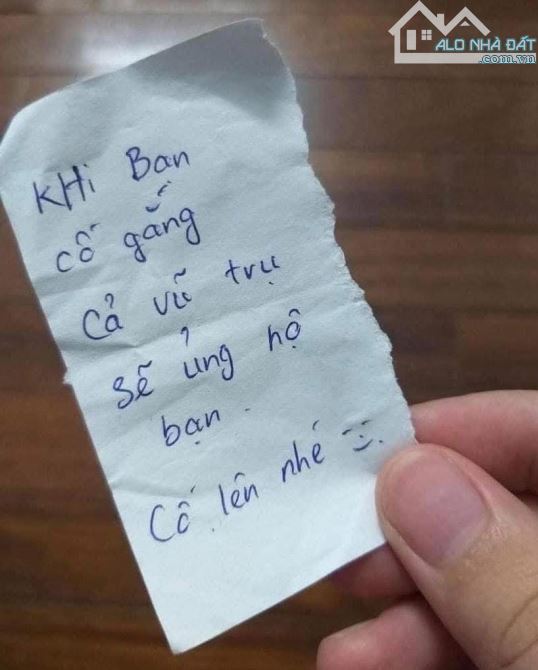 ALO NHÀ ĐẤT
.com.vn
KHi Bạn
cố gắng
Cả vũ trụ
sẽ ủng hộ
bạn.
Cố lên nhé :)